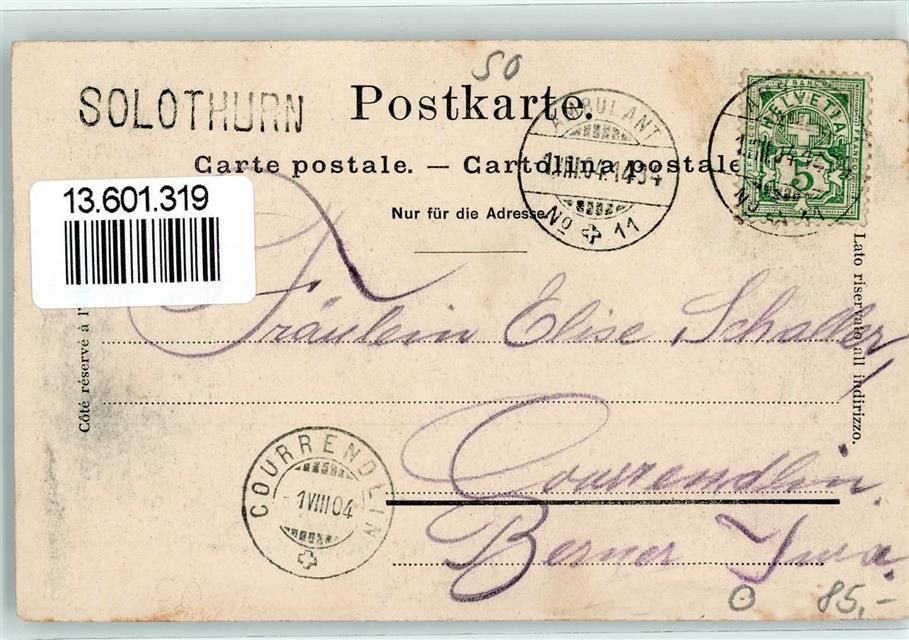 50
SOLOTHURN Postkarte.
Carte postale. — Cartolina postale
Nur für die Adresse
AMBULANT
1.VIII.04.14
No 11
HELVETIA
FRANCO
5
13.601.319
Côté réservé à l'
Lato riservato all indirizzo.
Fräulein Elise Schaller,
Courrendlin.
Berner Jura.
COURRENDLIN
1 VIII 04
85,-